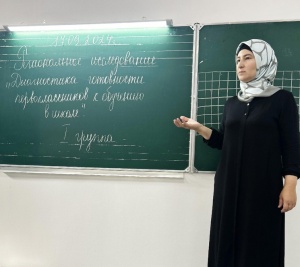 Региональное исследование
"Диагностика готовности
первоклассников к обучению
в школе"
I группа